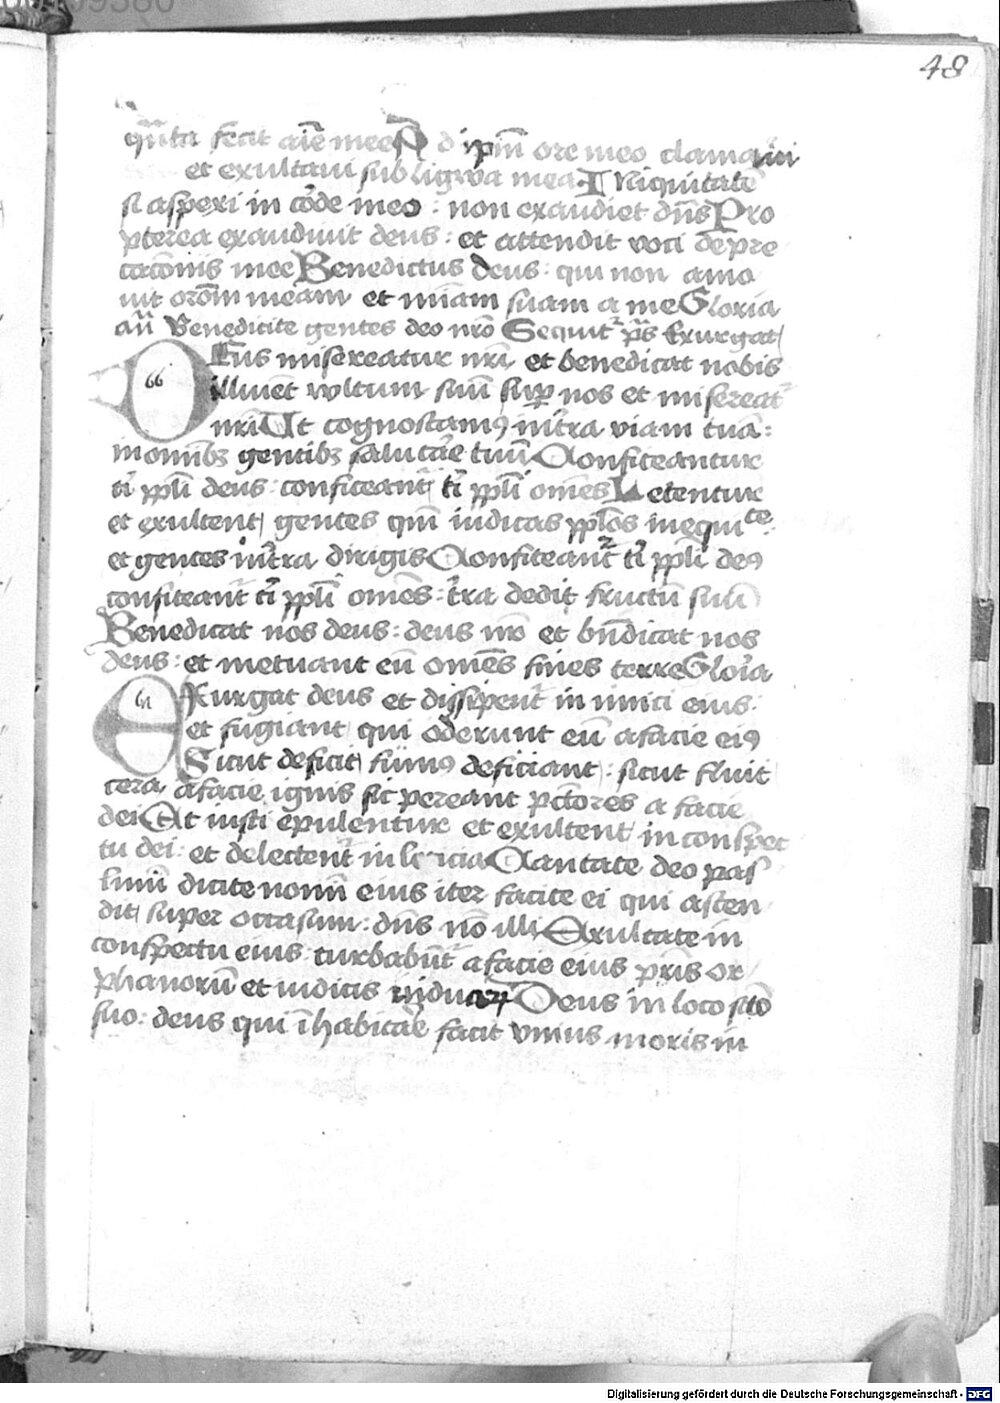 48
qu̅ta fecit aīe mee Ad ip̄m ore meo clamaui
et exultaui sub ligwa mea Iniquitatē
si aspexi in co̅de meo : non exaudiet dn̅s Pro
pterea exaudiuit deus : et attendit voci depre
cacōnis mee Benedictus deus : qui non amo
uit oro̅m meam et mi̅am suam a me Gloria
an̅ Benedicite gentes deo nr̅o Sequit̉ ps̅ Exurgat
66
DEus misereatur nr̅i et benedicat nobis
illuīet vvltum suū suꝑ nos et misereat̉
nr̅i Ut cognoscamꝰ in tr̅a viam tuā :
in omībꝫ gentibꝫ salutar̅e tuū Confiteantur
ti̅ ppl̅i deus : confiteant̉ ti̅ ppl̅i omēs Letentur
et exultent gentes qm̅ iudicas ppl̅os in equite̅
et gentes in tr̅a dirigis Confiteant̉ ti̅ ppl̅i deꝰ
confiteant̉ ti̅ ppl̅i omēs : tr̅a dedit fructū suū
Benedicat nos deus : deus nr̅ et bn̅dicat nos
deus : et metuant eū omēs fines terre Glor̅a
67
EXurgat deus et dissipent̉ in imici eius :
et fugiant qui oderunt eū a facie eiꝰ
Sicut deficit fūmꝰ deficiant : sicut fluit
cera a facie ignis sic pereant pctōres a facie
dei Et iusti epulentur et exultent in conspec
tu dei : et delectent̉ in leticia Cantate deo psal
lmū dicite nomī eius iter facite ei qui ascen
dit super occasum : dn̅s no̅ illi Exultate in
conspectu eius turbabūt̉ a facie eius pr̅is or
phanorū et iudicis viduaꝝ Deus in loco sc̅o
suo : deus qui īhabitar̅e facit vnius moris in
Digitalisierung gefördert durch die Deutsche Forschungsgemeinschaft - DFG